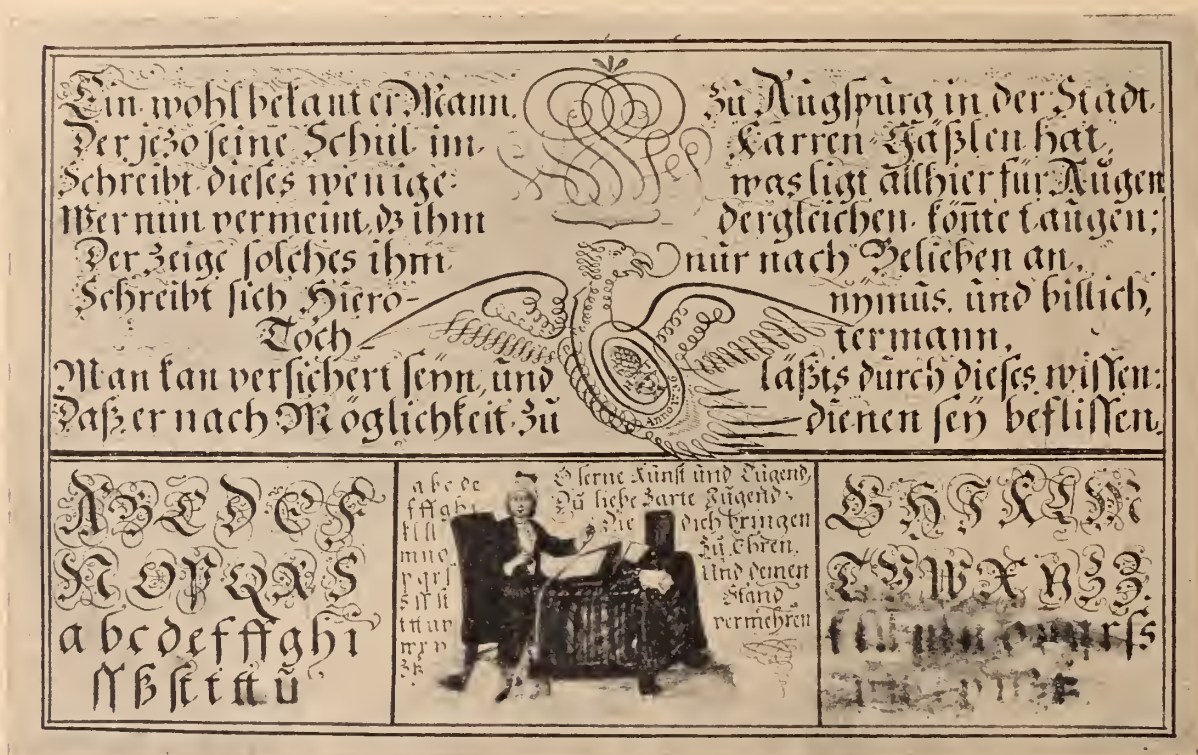 Ein wohl bekanter Mann, zu Augspurg in der Stadt.
Der jezo seine Schul im Karren Gäßlen hat,
Schreibt dieses wenige was ligt allhier für Augen
Wer nun vermeint, dz ihm dergleichen könte taugen;
Der zeige solches ihm nur nach Belieben an,
Schreibt sich Hiero- nymus, und billich,
Toch- termann,
Man kan versichert seyn, und läßts durch dieses wissen:
Daß er nach Möglichkeit zu dienen sey beflissen.
Anno
A B C D E F
N O P Q R S
a b c d e f ff g h i
ſſ ß ſt t tt ü
a b c d e
f ff g h i
m n o
p q r ſ
s ſſ ſt
w x y
z
O lerne Kunst und Tugend,
Du liebe zarte Jugend;
Die dich bringen
zu Ehren,
Und deinen
Stand
vermehren
G H I K L M
T V W X Y Z